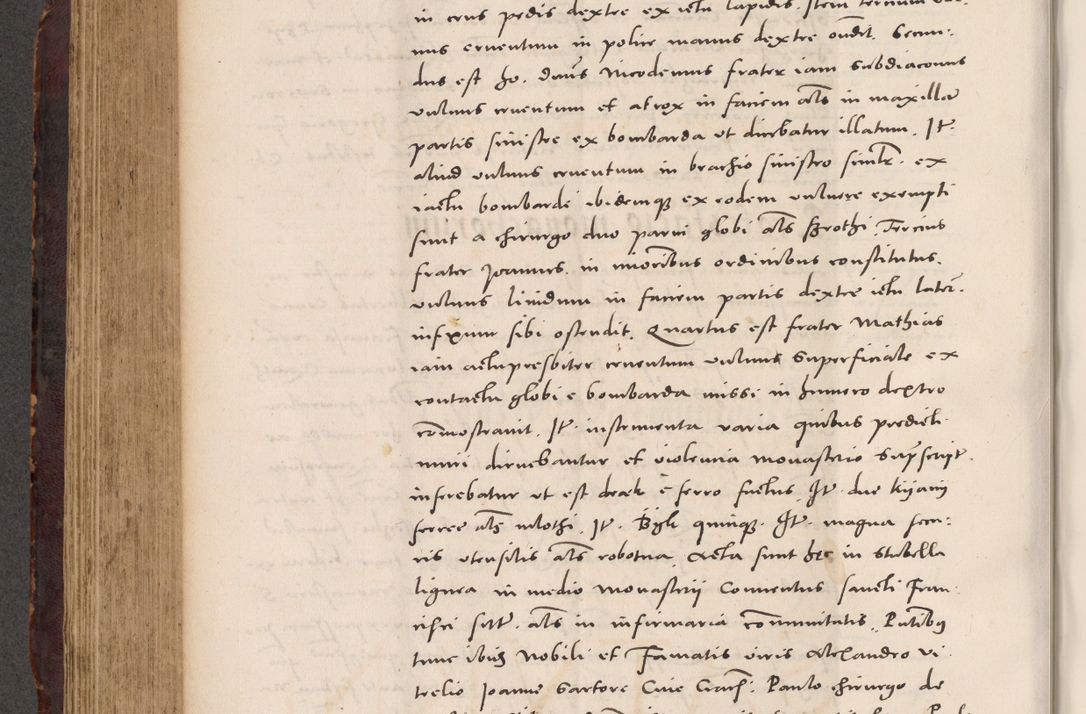 in crus pedis dextre ex ictu lapidis. Item tercium vul:
nus cruentum in polire manus dextre ondit. Secun:
dus est ho. dnus Nicodemus frater iam subdiaconus
vulnus cruentum et atrox in faciem als in maxilla
partis sinistre ex bombarda ut dicebatur illatum. It.
aliud vulnus cruentum in brachio sinistro simlr. ex
iactu bombarde ibidemq ex eodem vulnere exempti
sunt a chirurgo duo parvi globi als Srothi. Tercius
frater Joannes in mioribus ordinibus constitutus.
vulnus lividum in faciem partis dextre ictu later.
infixum sibi ostendit. Quartus est frater Mathias
iam actu presbiter cruentum vulnus superficiale ex
contactu globi e bombarda missi in humero dextro
comostravit. It. instrumenta varia quibus predicti
muri diruebantur et violencia monasterio supscript.
inferebatur ut est e ferro factus. It. due kijanij
ferree als mlothi. It. quinq. It. magna secu:
ris utensilis als robotna. Acta sunt hec in stubella
lignea in medio monasterij Conventus sancti Fran:
cisci sitt. als in infirmaria communitatis. Pntibq
tunc ibiq Nobili et Famatis viris Alexandro Vi
trelio Joanne Sartore Cive Paulo chirurgo de